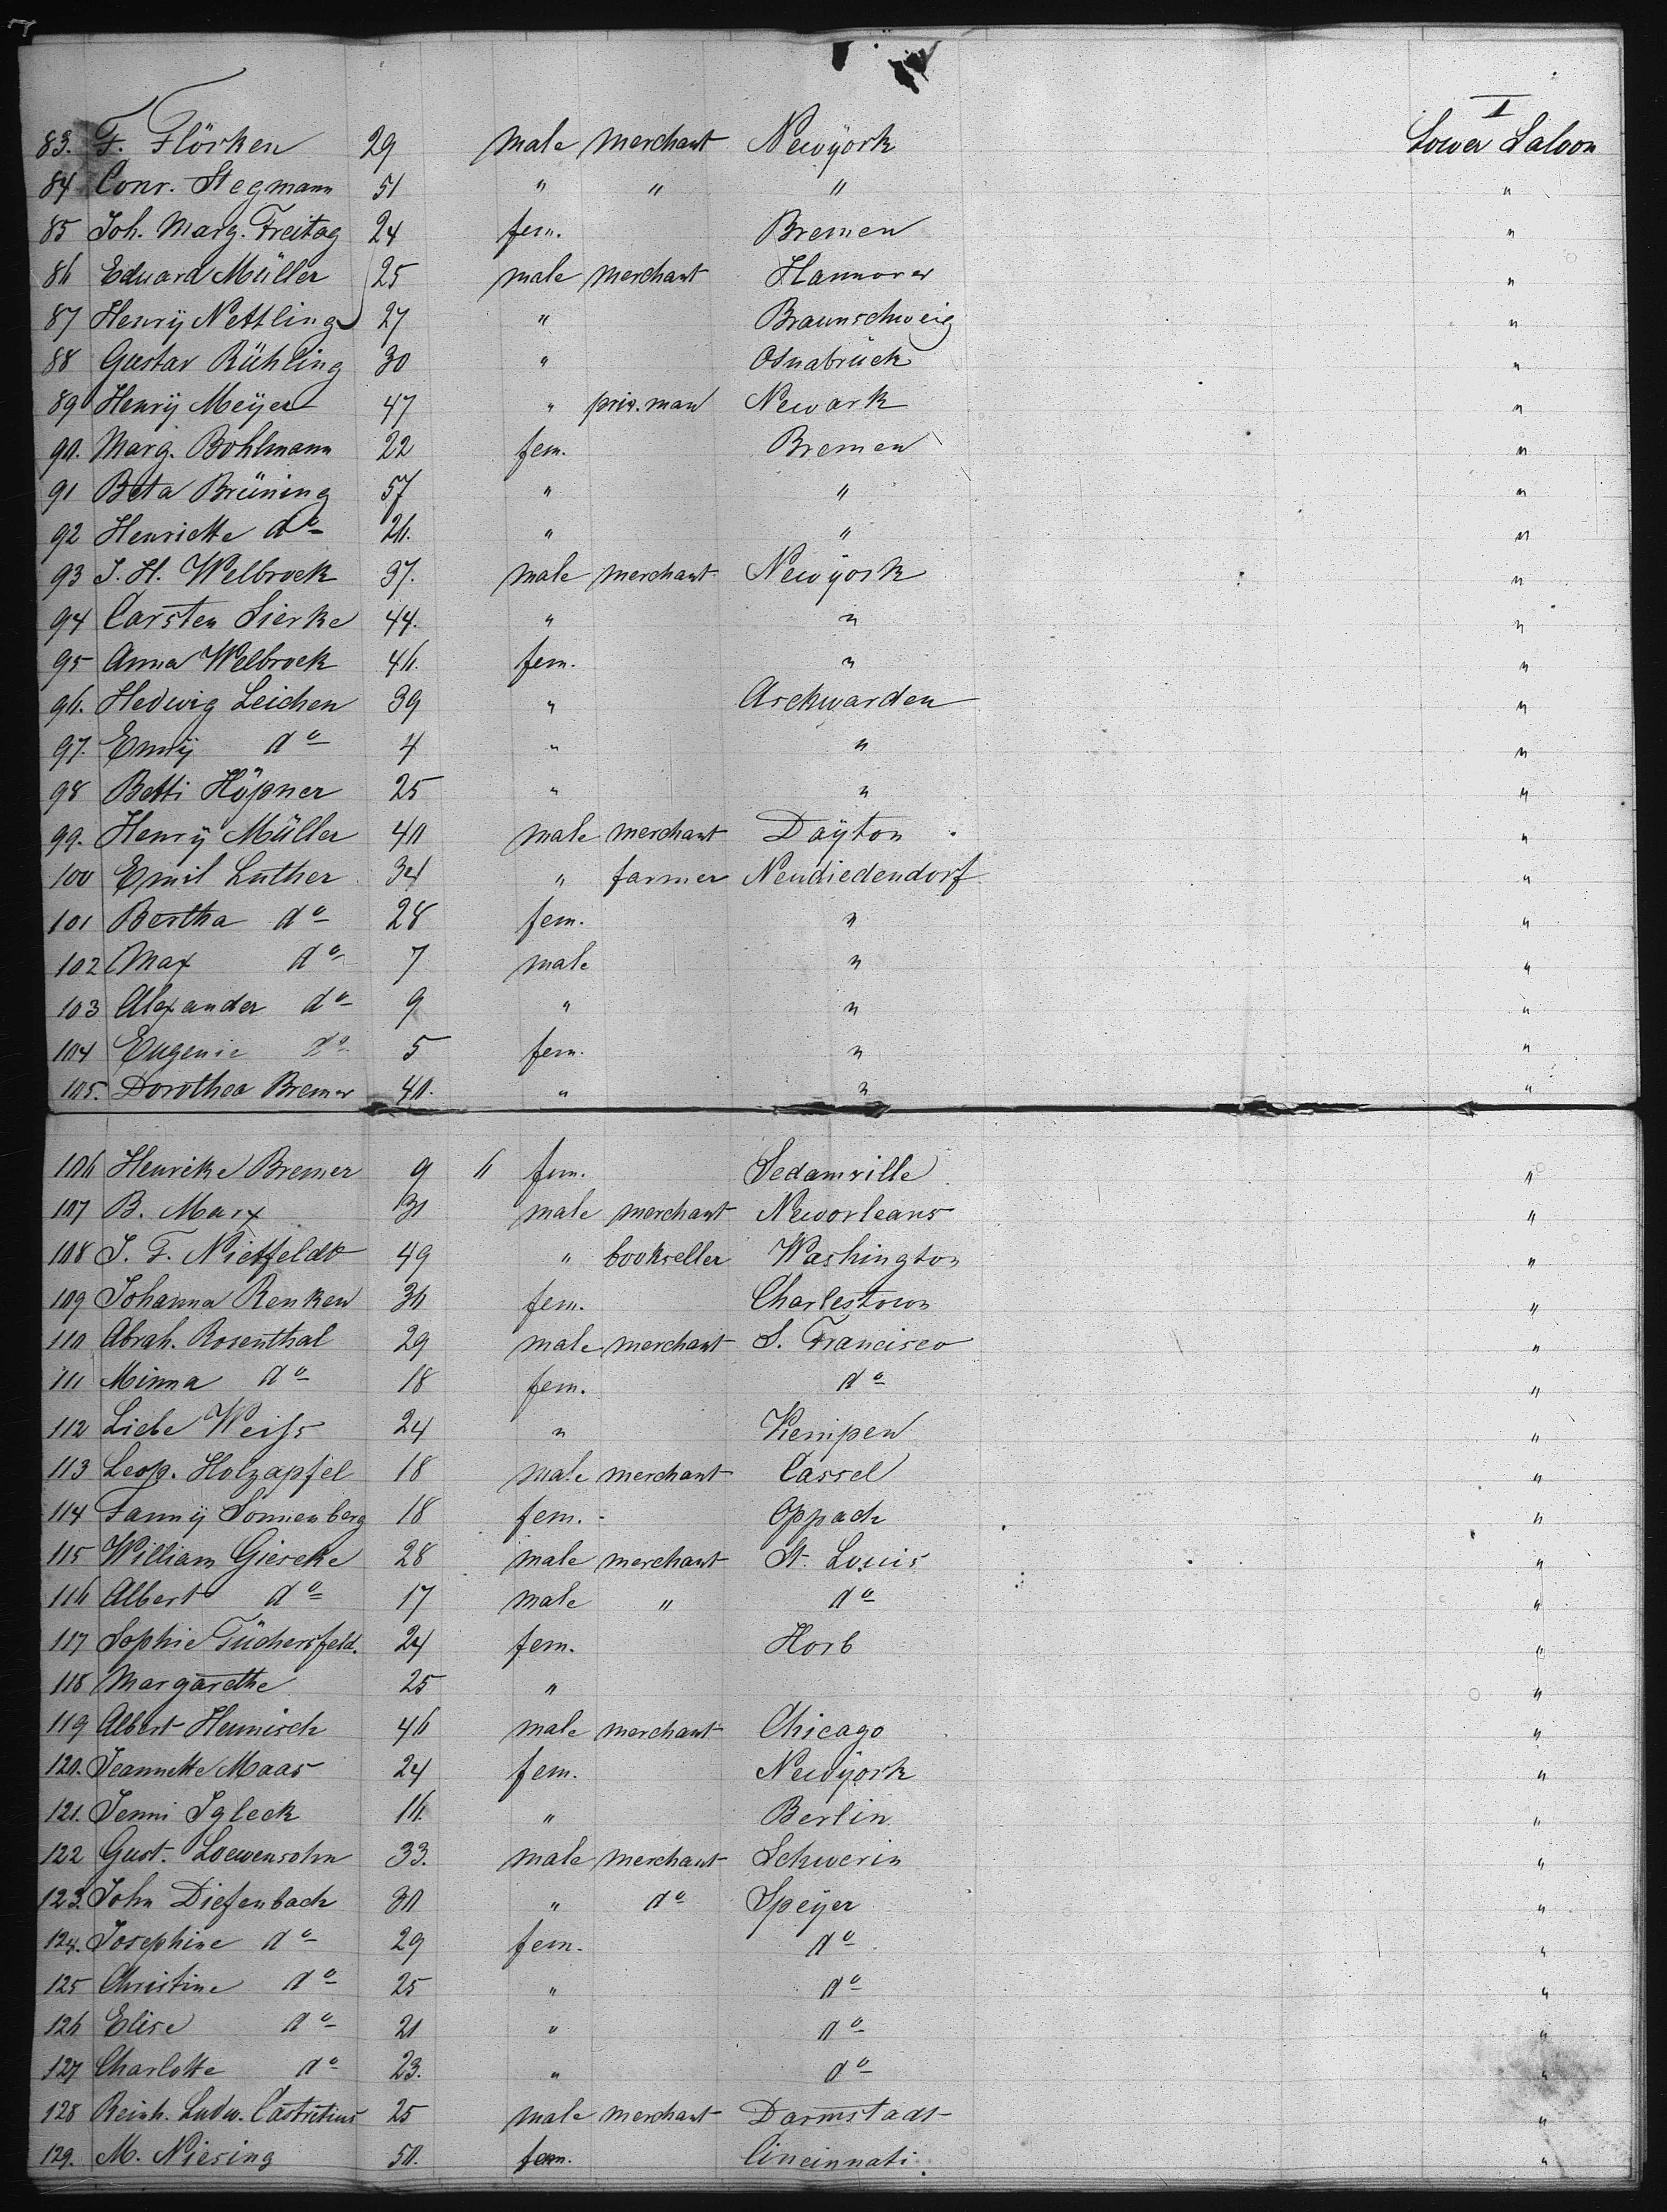 I
83. F. Flörken 29 male merchant Newÿork Lower Saloon
84 Conr. Stegmann 51 " " " "
85 Joh. Marg. Freitag 24 fem. Bremen "
86 Eduard Müller 25 male merchant Hannover "
87 Henrÿ Nettling 27 " Braunschweig "
88 Gustav Rühling 30 " Osnabrück "
89 Henrÿ Meÿer 47 " priv. man Newark "
90. Marg. Bohlmann 22 fem. Bremen "
91 Beta Brüning 57 " " "
92 Henriette do 26. " " "
93 J. H. Welbrock 37. male merchant Newÿork "
94 Carsten Sierke 44. " " "
95 Anna Welbrock 46. fem. " "
96. Hedwig Leichen 39 " Arckwarden "
97. Emÿ do 4 " " "
98 Betti Höpner 25 " " "
99. Henrÿ Müller 40 male merchant Daÿton "
100 Emil Luther 34 " farmer Neudiedendorf "
101 Bertha do 28 fem. " "
102 Max do 7 male " "
103 Alexander do 9 " " "
104 Eugenie do 5 fem. " "
105. Dorothea Bremer 40. " " "
106 Henrike Bremer 9 6 fem. Sedamville "
107 B. Marx 31 male merchant Neworleans "
108 J. F. Nietfeldt 49 " bookseller Washington "
109 Johanna Renken 30 fem. Charlestown "
110 Abrah. Rosenthal 29 male merchant S. Francisco "
111 Minna do 18 fem. do "
112 Liebe Weiſs 24 " Kempen "
113 Leop. Holzapfel 18 male merchant Cassel "
114 Fannÿ Sonnenberg 18 fem. Oppach "
115 William Giescke 28 male merchant St. Louis "
116 Albert do 17 male " do "
117 Sophie Tüchersfeld. 24 fem. Horb "
118 Margarethe 25 " "
119 Albert Hennisch 46 male merchant Chicago "
120. Jeannette Maas 24 fem. Newÿork "
121. Jenni Igleck 16. " Berlin "
122 Gust. Loewensohn 33. male merchant Schwerin "
123. John Diefenbach 30 " do Speÿer "
124. Josephine do 29 fem. do "
125 Christine do 25 " do "
126 Elise do 21 " do "
127 Charlotte do 23. " do "
128 Reinh. Ludw. Castritius 25 male merchant Darmstadt "
129. M. Niesing 50. fem. Cincinnati. "